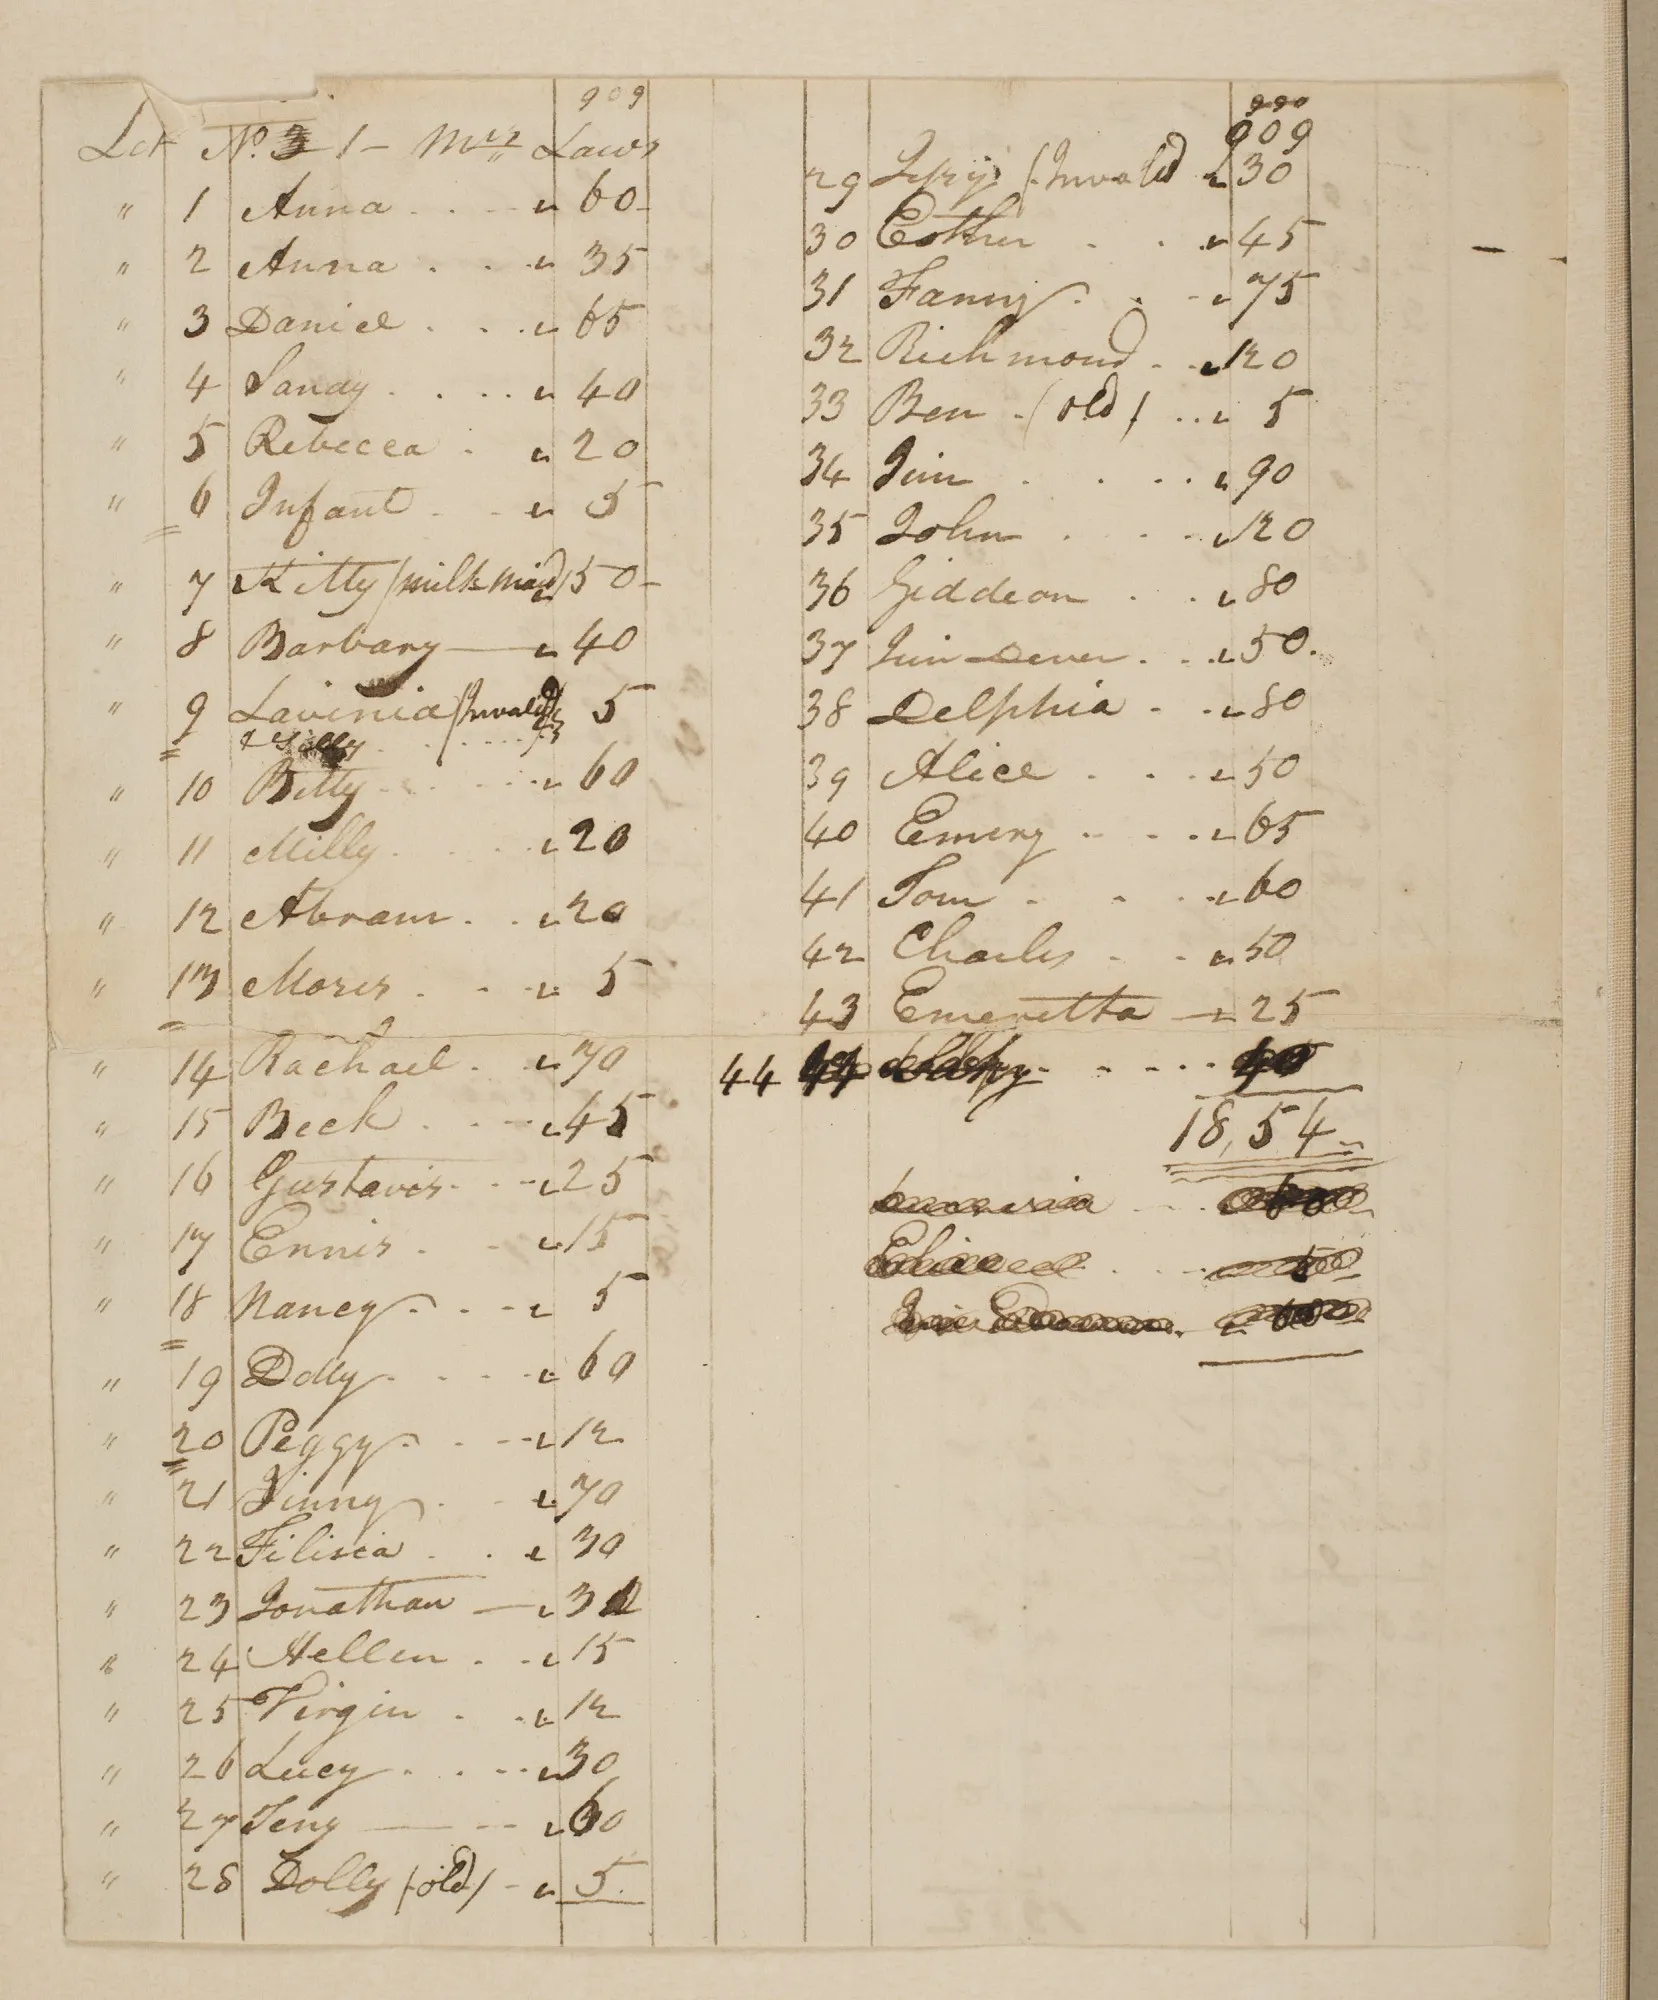 909
Lot No. 1 - Mrs Laws
" 1 Anna . . . " 60
" 2 Anna . . . " 35
" 3 Daniel . . . " 65
" 4 Sandy . . . . " 40
" 5 Rebecca . " 20
" 6 Infant . . " 5
" 7 Kitty (milk maid) " 50
" 8 Barbary — " 40
" 9 Lavinia (Invalid) 5
" 10 Betty . . . . " 60
" 11 Milly . . . " 20
" 12 Abram . . " 20
" 13 Moses . . . " 5
" 14 Rachael . . " 70
" 15 Beck . . . " 45
" 16 Gustavis . . . " 25
" 17 Ennis . . " 15
" 18 Nancy . . . " 5
" 19 Dolly . . . . " 60
" 20 Peggy . . . " 12
" 21 Jinny . . " 70
" 22 Filisia . . " 30
" 23 Jonathan — " 3
" 24 Hellen . . " 15
" 25 Virgin . . " 12
" 26 Lucy . . . . " 30
" 27 Teny — . . " 60
" 28 Dolly (old) - " 5.
909
29 (Invalid " 30
30 Esther . . " 45
31 Fanny . . . " 75
32 Richmond . . " 120
33 Ben . (old) . . " 5
34 Jim . . . . " 90
35 John . . . " 120
36 Giddeon . . " 80
37 Jim Dever . . . " 50.
38 Delphia . . " 80
39 Alice . . . " 50
40 Emery . . . " 65
41 Tom . . . " 60
42 Charles . . " 50
43 Emeretta — " 25
44
18,54